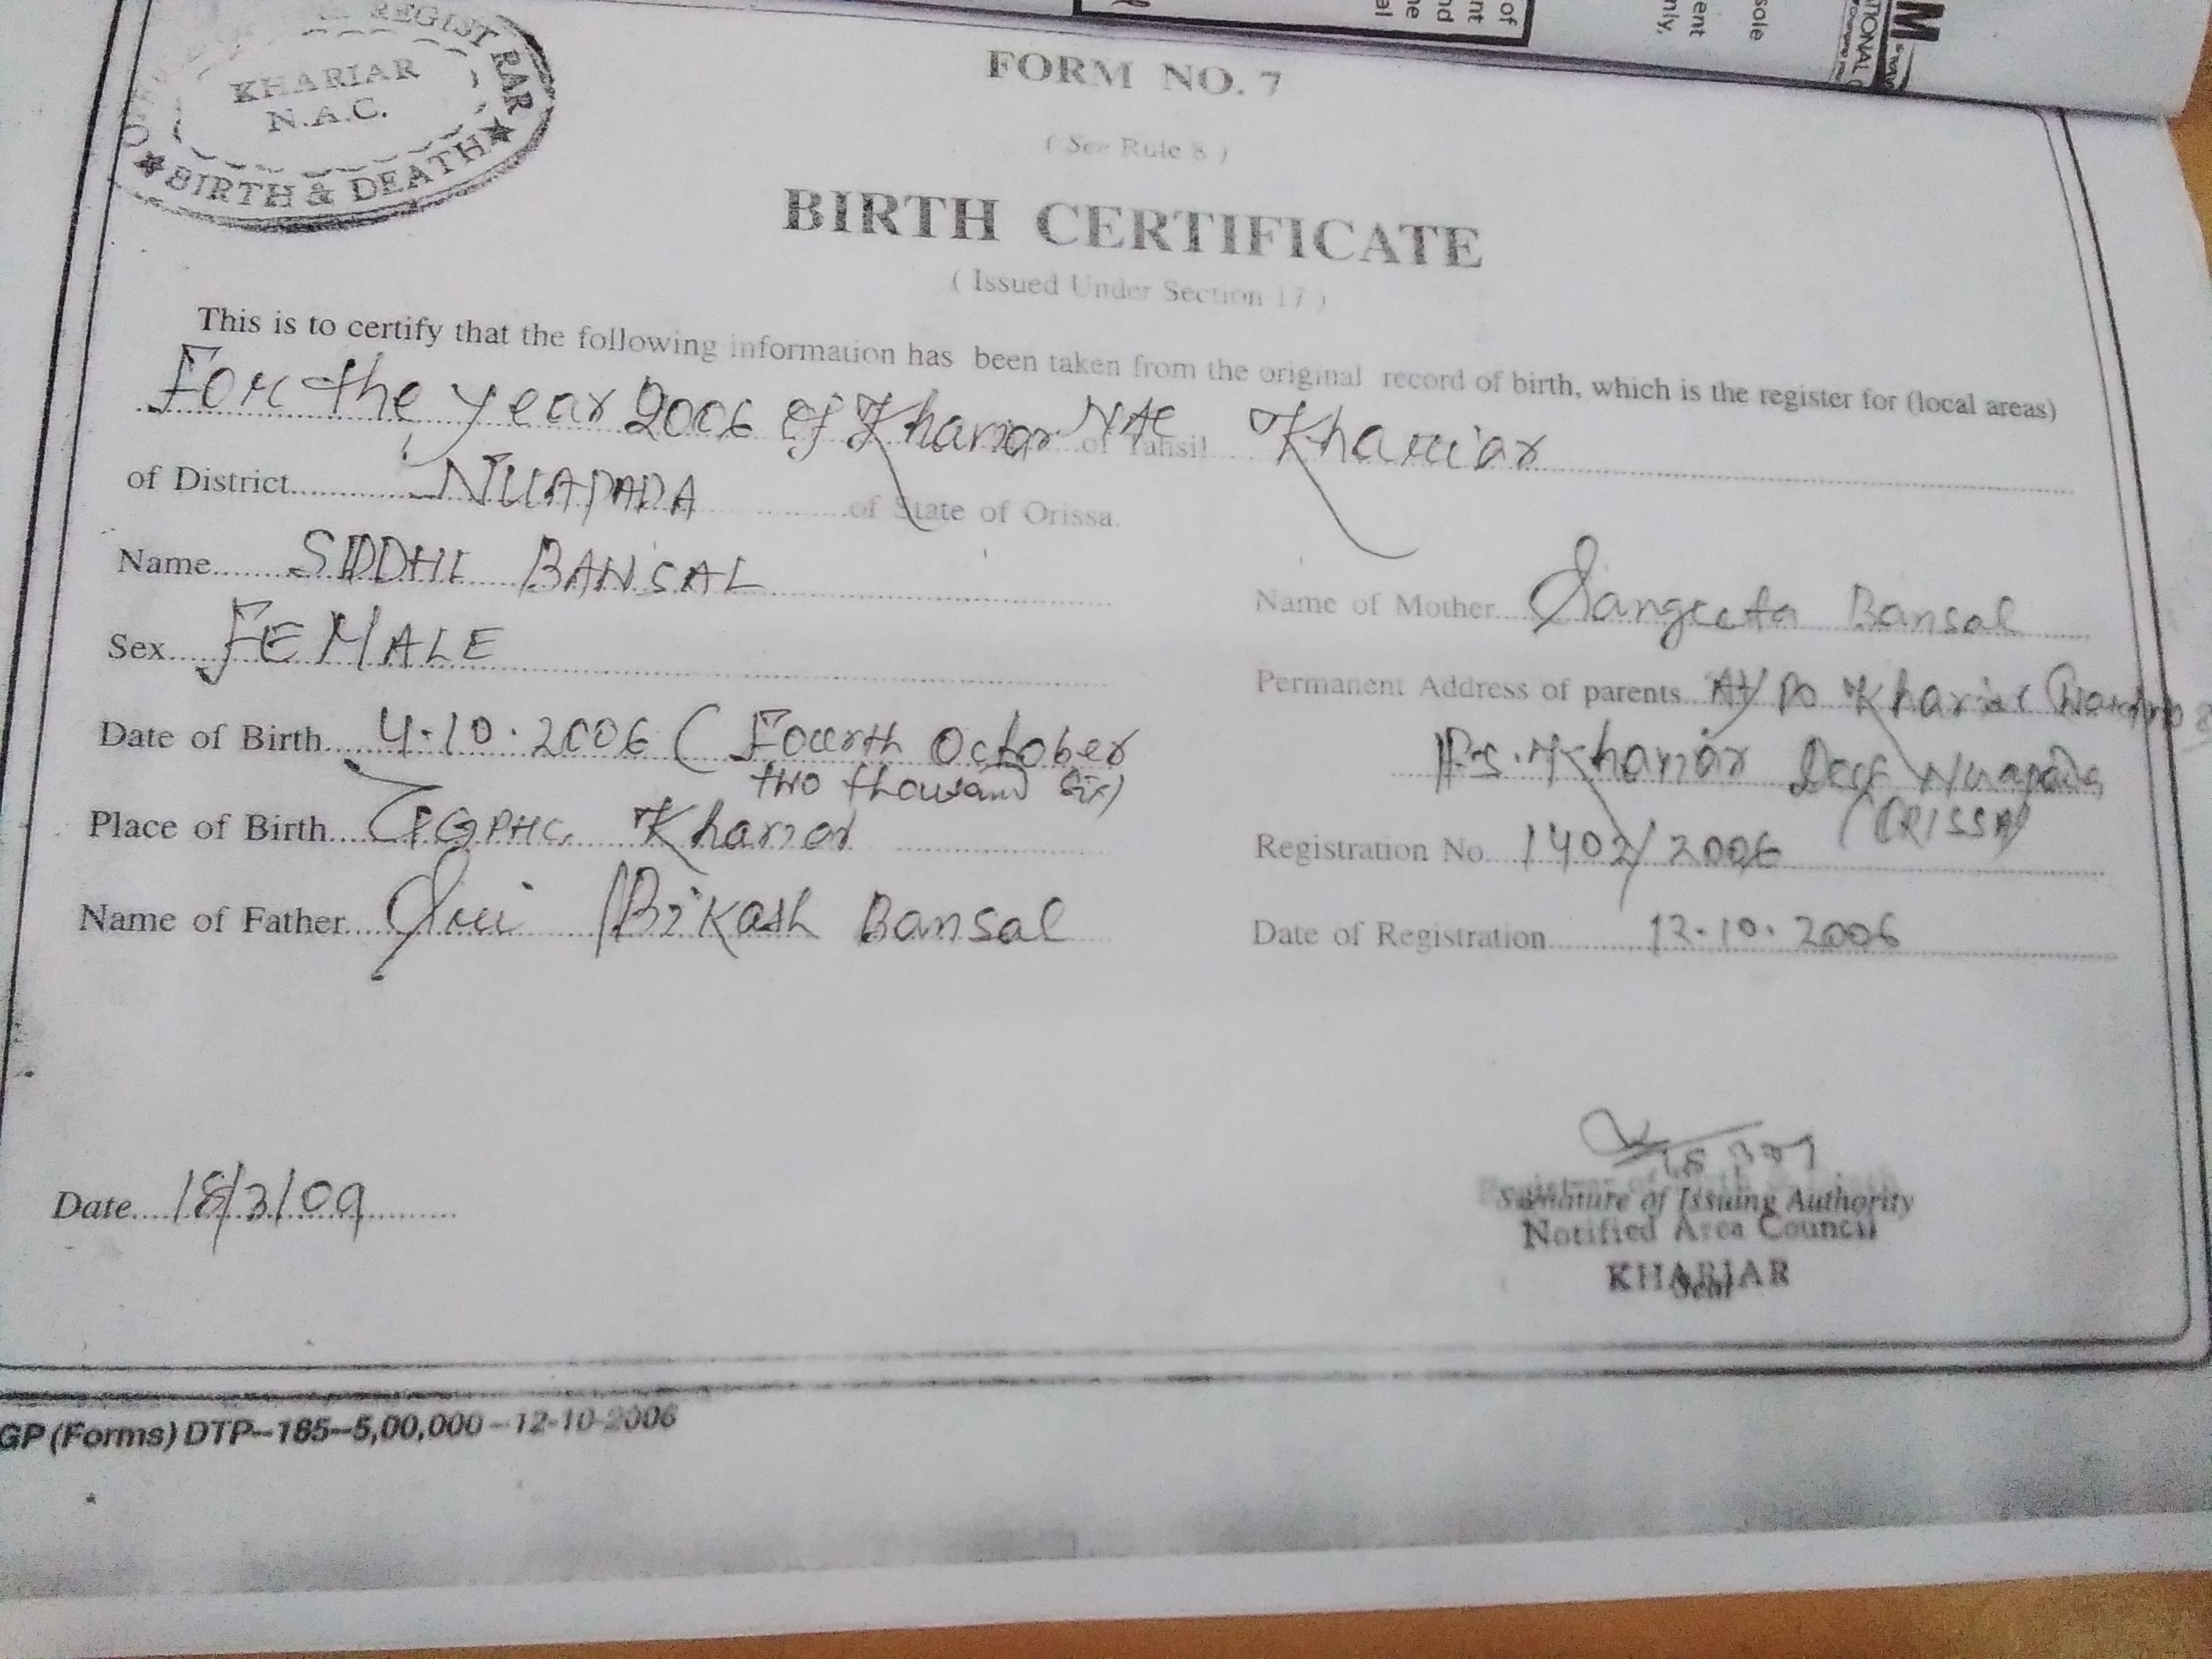 REGISTRAR
KHARIAR
N.A.C.
★ BIRTH & DEATH ★
sole
ent
nly,
of
nt
nd
ne
al
M
FORM NO. 7
( See Rule 8 )
BIRTH CERTIFICATE
( Issued Under Section 17 )
This is to certify that the following information has been taken from the original record of birth, which is the register for (local areas)
For the year 2006 of Khariar NAC of Tahsil Khariar
of District NUAPADA of State of Orissa.
Name SIDDHI BANSAL
Sex FEMALE
Date of Birth 4.10.2006 ( Fourth October
two thousand Six)
Place of Birth Khariar
Name of Father Sri Bikash Bansal
Name of Mother Sangeeta Bansal
Permanent Address of parents At/Po Khariar
Ps. Khariar Nuapada
(ORISSA)
Registration No. 1402/2006
Date of Registration 12.10.2006
Date 18/3/09
Signature of Issuing Authority
Notified Area Council
KHARIAR
Seal
GP (Forms) DTP--185--5,00,000--12-10-2006